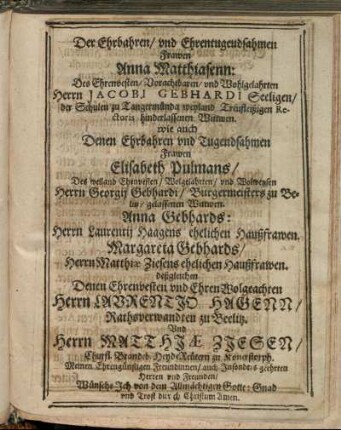 Der Ehrbahren/ vnd Ehrentugendsahmen
Frawen
Anna Matthiasenn:
Des Ehrenvesten/ Vorachtbaren/ vnd Wohlgelahrten
Herrn JACOBI GEBHARDI Seeligen/
der Schulen zu Tangermünda weyland Trewfleißigen Re-
ctoris hinderlassenen Witwen.
wie auch
Denen Ehrbahren vnd Tugendsahmen
Frawen
Elisabeth Pulmans/
Des weiland Ehrnvesten/ Wolgelahrten/ vnd Wolweisen
Herrn Georgij Gebhardi/ Burgermeisters zu Be-
litz/ gelassenen Witwen.
Anna Gebhards:
Herrn Laurentij Haagens ehelichen Haußfrawen.
Margareta Gebhards/
Herrn Matthiæ Ziesens ehelichen Haußfrawen.
deßgleichen
Denen Ehrenvesten vnd Ehren Wolgeachten
Herrn LAVRENTIO HAGENN/
Rathsverwandten zu Beelitz.
Vnd
Herrn MATTHIÆ ZIESEN/
Churfl. Brandeb. Heyde Reütern zu
Meinen Ehrengünstigen Freundinnen/ auch Insonders geehrten
Herren vnd Freunden/
Wünsche Ich von dem Allmächtigen Gotte: Gnad
vnd Trost durch Christum Amen.